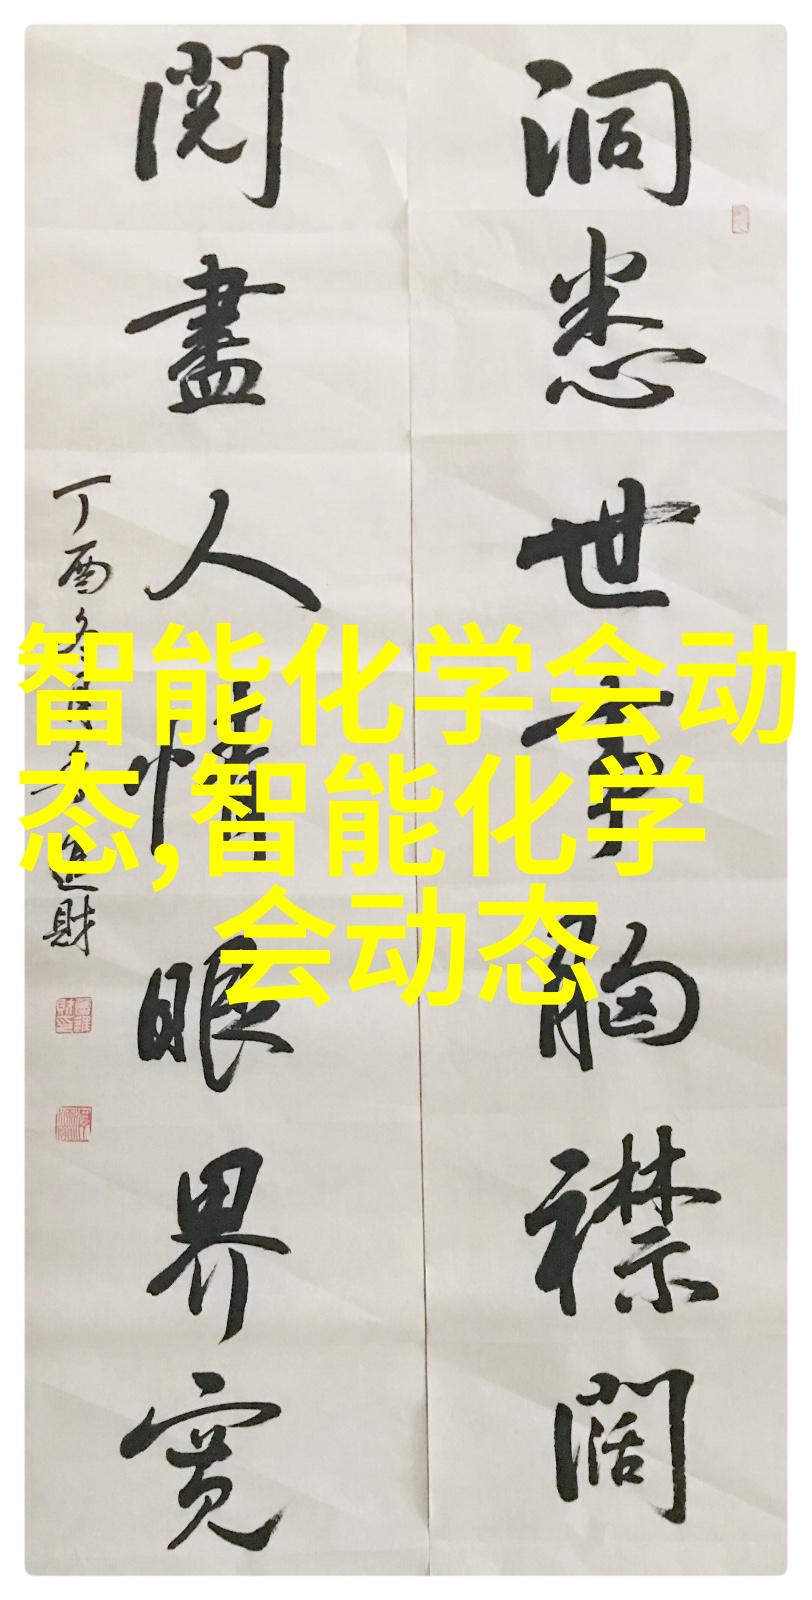 洞悉世事胸襟闊
閱盡人情眼界寬
丁酉冬月
財
智能化学会动
态,智能化学
会动态